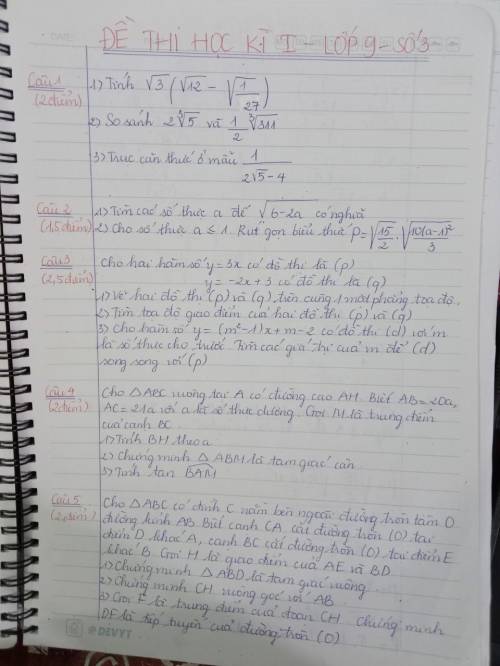 ĐỀ THI HỌC KÌ I - LỚP 9 - SỐ 3
Câu 1
(2 điểm)
1) Tính √3 (√12 - √(1/27))
2) So sánh 2∛5 và 1/2 ∛311
3) Trục căn thức ở mẫu 1/(2√5 - 4)
Câu 2
(1,5 điểm)
1) Tìm các số thực a để √(6-2a) có nghĩa
2) Cho số thực a ≤ 1. Rút gọn biểu thức P = √(15/2) . √(10(a-1)²/3)
Câu 3
(2,5 điểm)
Cho hai hàm số y = 3x có đồ thị là (p)
y = -2x + 3 có đồ thị là (q)
1) Vẽ hai đồ thị (p) và (q) trên cùng 1 mặt phẳng toạ độ.
2) Tìm toạ độ giao điểm của hai đồ thị (p) và (q)
3) Cho hàm số y = (m²-1)x + m - 2 có đồ thị (d) với m
là số thực cho trước. Tìm các giá trị của m để (d)
song song với (p)
Câu 4
(2 điểm)
Cho △ABC vuông tại A có đường cao AH. Biết AB = 20a,
AC = 21a với a là số thực dương. Gọi M là trung điểm
của cạnh BC
1) Tính BH theo a
2) Chứng minh △ABM là tam giác cân
3) Tính tan BAM
Câu 5
(2 điểm)
Cho △ABC có đỉnh C nằm bên ngoài đường tròn tâm O
đường kính AB. Biết cạnh CA cắt đường tròn (O) tại
điểm D khác A, cạnh BC cắt đường tròn (O) tại điểm E
khác B. Gọi H là giao điểm của AE và BD
1) Chứng minh △ABD là tam giác vuông
2) Chứng minh CH vuông góc với AB
3) Gọi F là trung điểm của đoạn CH. Chứng minh
DF là tiếp tuyến của đường tròn (O)
@DEVYT